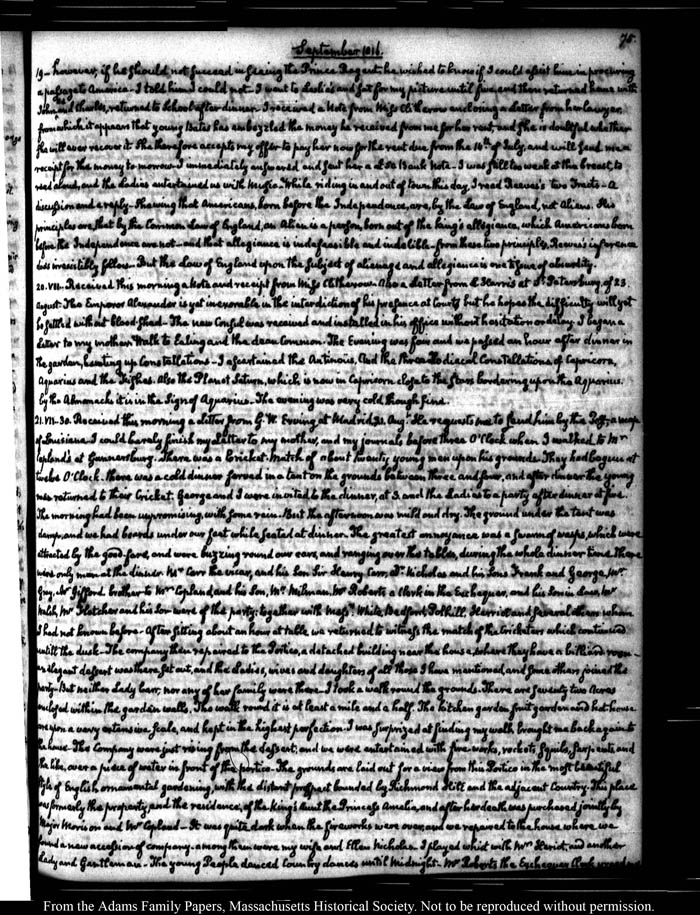 75.
September 1816.
19— however, if he should not succeed in seeing the Prince Regent he wished to know if I could assist him in procuring
a passage to America. I told him I could not. I went to Leslie's and sat for my picture until five, and then returned home with
John and Charles, returned to School after dinner. I received a Note from Miss Clitherow enclosing a Letter from her lawyer,
from which it appears that young Bates has embezzled the money he received from me for her rent, and she is doubtful whether
she will ever recover it. She therefore accepts my offer to pay her now for the rent due from the 10th of July, and will send me a
receipt for the money to morrow. I immediately answered and sent her a Bank Note— I was still too weak at the breast, to
read aloud, and the Ladies entertained us with Music. While riding in and out of town this day, I read Reeves's two Tracts— A
discussion and a reply. Shewing that Americans, born before the Independence, are, by the Law of England, not Aliens. His
principles are, that by the Common Law of England, an Alien is a person, born out of the king's allegiance, which Americans born
before the Independence are not— and that allegiance is indefeasible and indelible. from these two principles, Reeves's inference
does irresistibly follow— But the Law of England upon the subject of alienage and allegiance is one tissue of absurdity.
20. VIII. Received this morning a Note and receipt from Miss Clitherow. Also a Letter from L. Harris at St. Petersburg, of 23.
August. The Emperor Alexander is yet inexorable in the interdiction of his presence at Court; but he hopes the difficulty will yet
be settled without blood-shed— The new Consul was received and installed in his office without hesitation or delay. I began a
Letter to my mother. Walk to Ealing and the dean Common. The Evening was fair and we passed an hour after dinner in
the garden, hunting up Constellations— I ascertained the Antinous, and the three Zodiacal Constellations of Capricorn,
Aquarius and the Fishes. Also the Planet Saturn, which is now in Capricorn close to the Stars bordering upon the Aquarius.
by the Almanack it is in the Sign of Aquarius. The evening was very cold though fine.
21. VII-30. Received this morning a Letter from G. W. Erving at Madrid 31. Aug. He requests me to send him by the Post, a map
of Louisiana. I could barely finish my Letter to my mother, and my journals before three O'Clock when I walked to Mr
Copland's at Gunnersbury. There was a Cricket-Match of about twenty young men upon his grounds. They had begun at
twelve O'Clock. There was a cold dinner served in a tent on the grounds between three and four, and after dinner the young
men returned to their Cricket. George and I were invited to the dinner, at 3. and the Ladies to a party after dinner at five.
The morning had been unpromising, with some rain. But the afternoon was mild and dry. The ground under the tent was
damp, and we had boards under our feet while seated at dinner. The greatest annoyance was a swarm of wasps, which were
attracted by the good-fare, and were buzzing round our ears, and ranging over the tables, during the whole dinner time. There
were only men at the dinner. Mr Carr the vicar, and his Son Sir Henry Carr, Dr. Nicholas and his Sons Frank and George, Mr
Guy, Mr Gifford brother to Mrs Copland, and his Son, Mr Milman, Mr Roberts a Clerk in the Exchequer, and his Son in Law, Mr
Walsh, Mr Fletcher and his Son were of the party; together with Messrs White, Bedford, Polhill, Herriot and several others whom
I had not known before. After sitting about an hour at table, we returned to witness the match of the Cricketers which continued
untill the dusk. The company then repaired to the Portico, a detached building near the house, where they have a billiard-room—
an elegant dessert was there set out, and the Ladies, wives and daughters of all those I have mentioned, and some others joined the
party. But neither Lady Carr, nor any of her family were there. I took a walk round the grounds. There are seventy two Acres
enclosed within the garden walls. The walk round it is at least a mile and a half. The kitchen garden fruit garden and hot-house
are upon a very extensive scale, and kept in the highest perfection. I was surprized at finding my walk brought me back again to
the house. The Company were just rising from the dessert; and we were entertained with fire-works, rockets, squibs, serpents and
the like, over a piece of water in front of the portico. The grounds are laid out for a view from this Portico in the most beautiful
style of English ornamental gardening, with the distant prospect bounded by Richmond Hill and the adjacent Country. This place
was formerly the property, and the residence, of the king's Aunt the Princess Amelia, and after her death was purchased jointly by
Major Morison and Mr Copland— It was quite dark when the fireworks were over, and we repaired to the house where we
found a new accession of company. among them were my wife and Ellen Nicholas. I played whist with Mrs Heriot, and another
Lady and Gentleman. The young People danced Country dances until Midnight. Mr Roberts the Exchequer Clerk
From the Adams Family Papers, Massachusetts Historical Society. Not to be reproduced without permission.